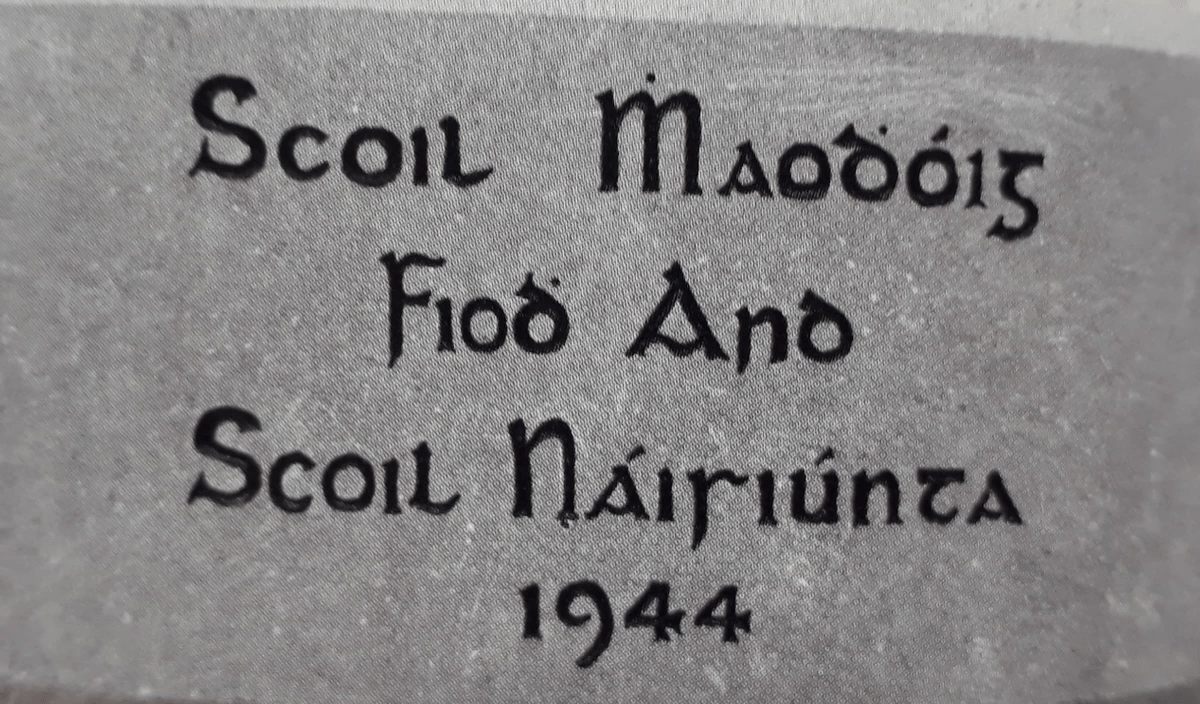 Scoil Ṁaoḋóig
Fioḋ Ard
Scoil Náisiúnta
1944